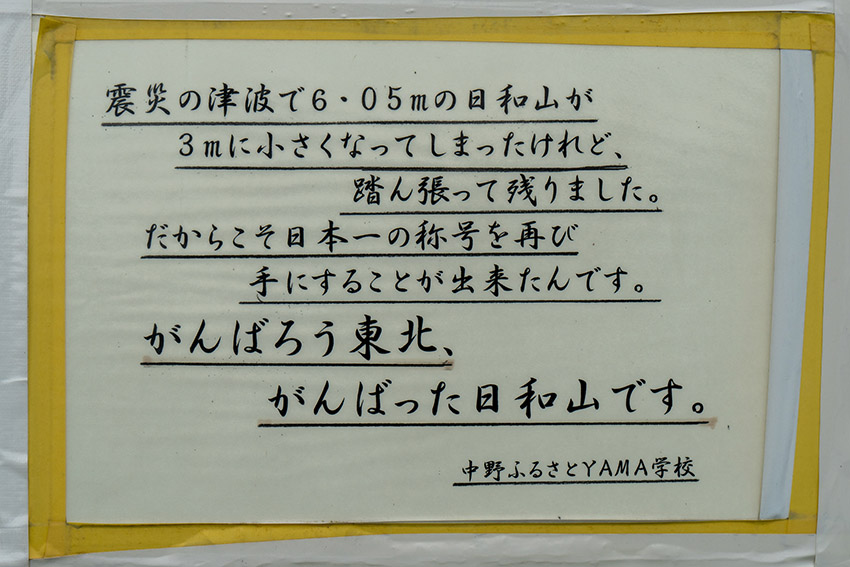 震災の津波で6・05mの日和山が
3mに小さくなってしまったけれど、
踏ん張って残りました。
だからこそ日本一の称号を再び
手にすることが出来たんです。
がんばろう東北、
がんばった日和山です。
中野ふるさとYAMA学校